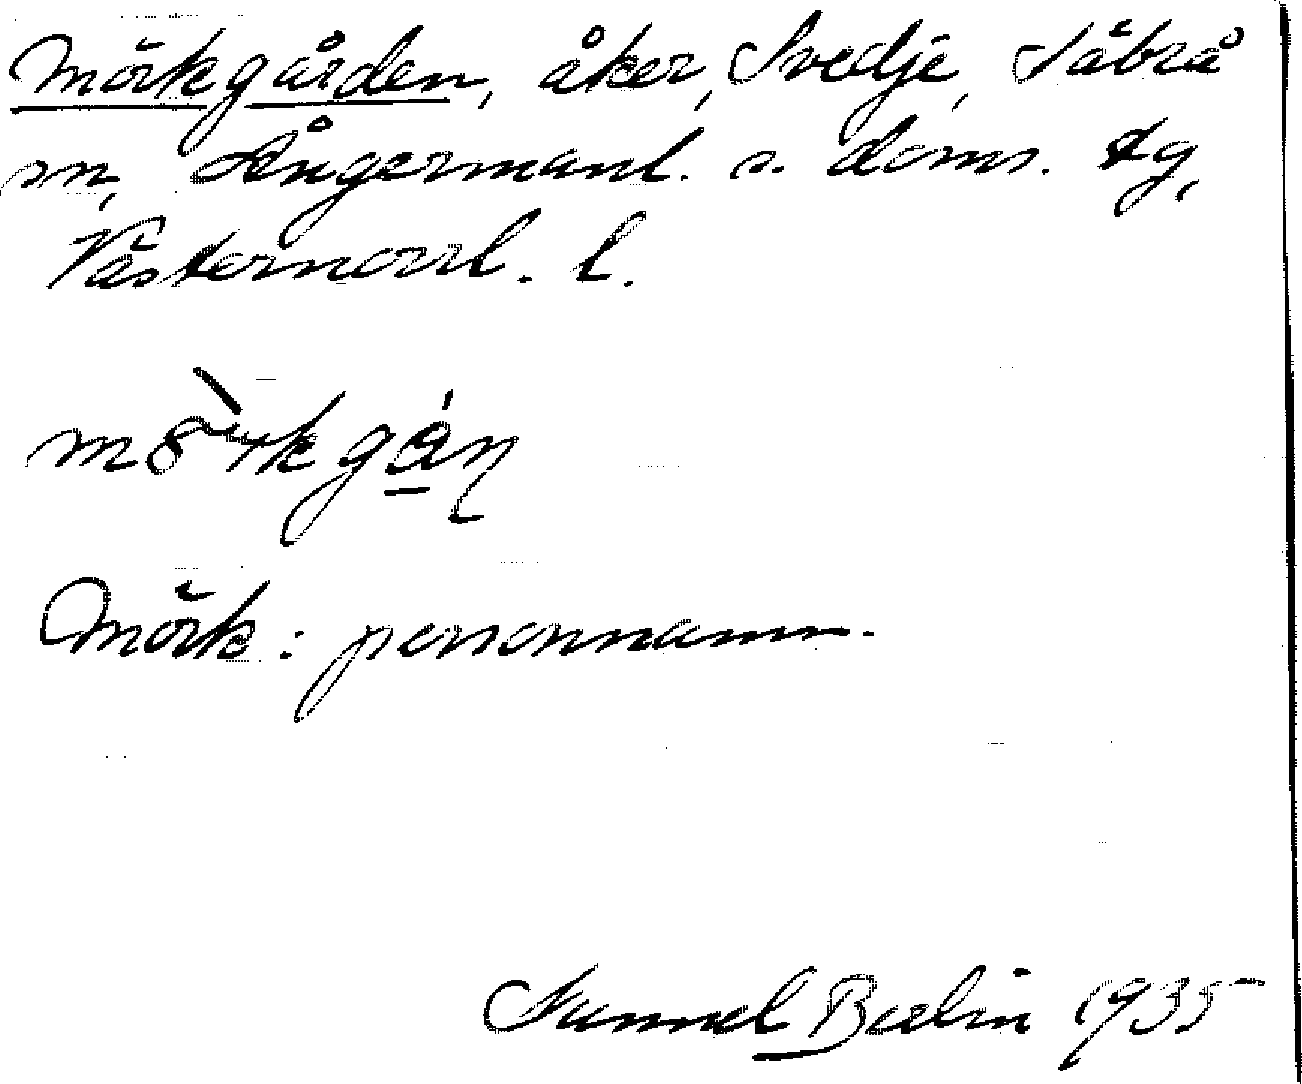 Mörkgården, åker, Svedje, Säbrå
sn, Ångermanl. s. doms. tg,
Västernorrl. l.
Mörk: personnamn.
Samuel Berlin 1935